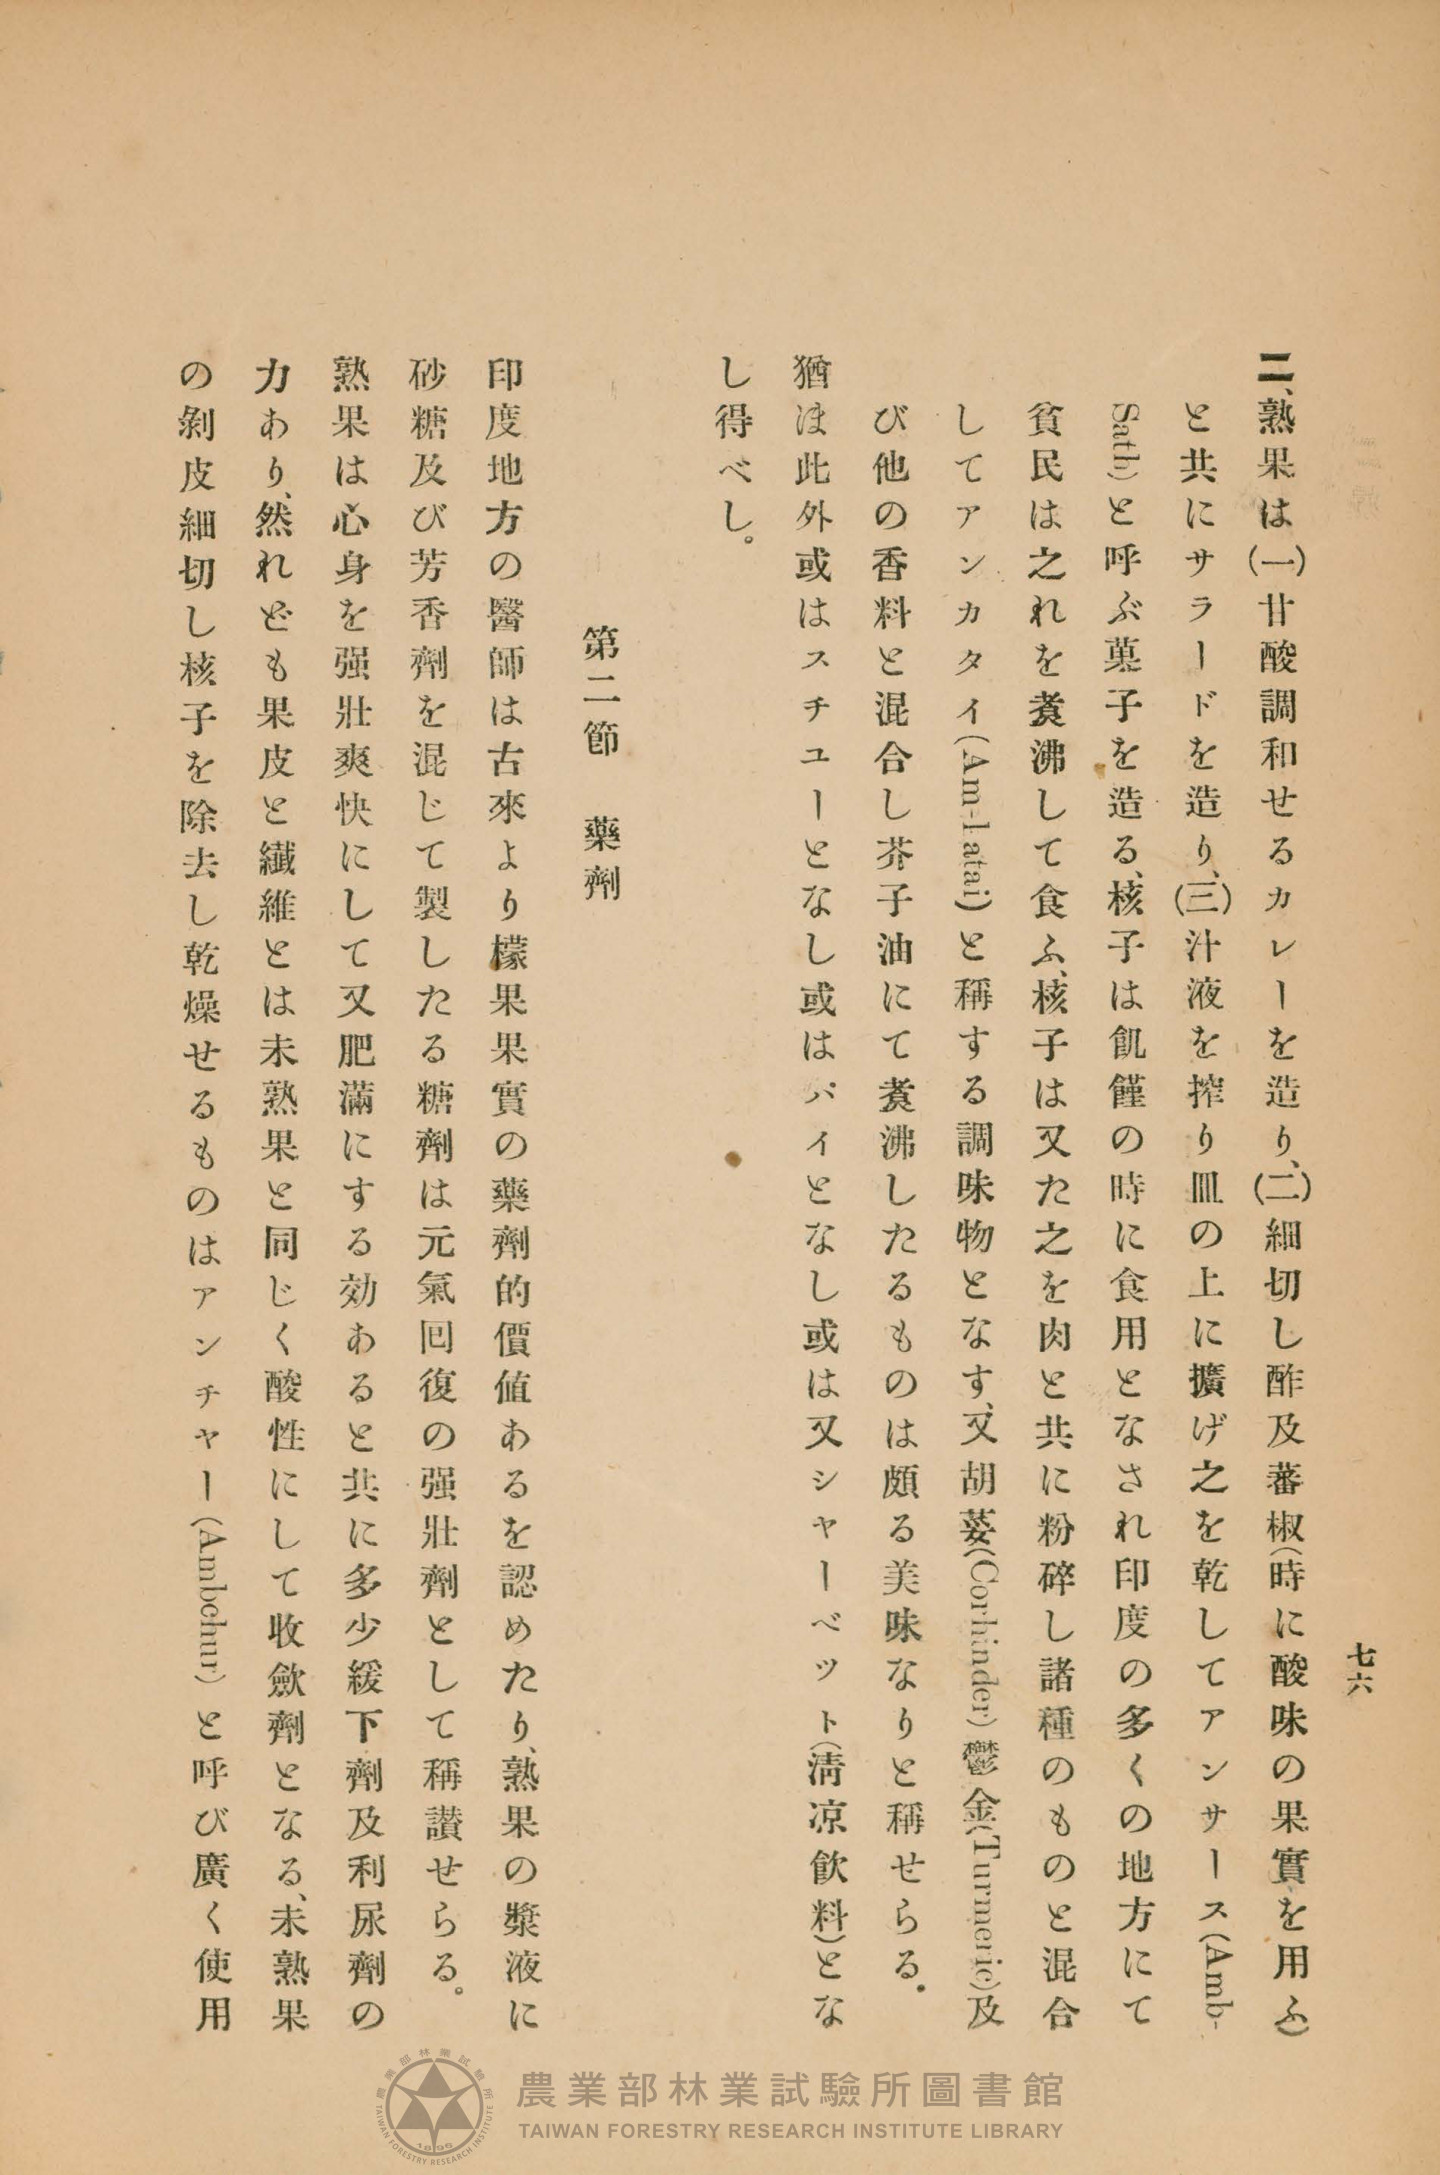 七六
二、熟果は(一)甘酸調和せるカレーを造り、(二)細切し酢及蕃椒(時に酸味の果實を用ふ)
と共にサラードを造り、(三)汁液を搾り皿の上に擴げ之を乾してアンサース(Amb-
Sath)と呼ぶ菓子を造る、核子は飢饉の時に食用となされ印度の多くの地方にて
貧民は之れを煑沸して食ふ、核子は又た之を肉と共に粉碎し諸種のものと混合
してアンカタイ(Am-latai)と稱する調味物となす、又胡荽(Corhinder)鬱金(Turmeric)及
び他の香料と混合し芥子油にて煑沸したるものは頗る美味なりと稱せらる。
猶ほ此外或はスチユーとなし或はパイとなし或は又シャーベツト(淸凉飮料)とな
し得べし。
第二節　藥劑
印度地方の醫師は古來より檬果果實の藥劑的價値あるを認めたり、熟果の漿液に
砂糖及び芳香劑を混じて製したる糖劑は元氣囘復の强壯劑として稱讃せらる。
熟果は心身を强壯爽快にして又肥滿にする効あると共に多少緩下劑及利尿劑の
力あり、然れども果皮と纖維とは未熟果と同じく酸性にして收斂劑となる、未熟果
の剝皮細切し核子を除去し乾燥せるものはアンチャー(Ambchur)と呼び廣く使用
農業部林業試驗所圖書館
TAIWAN FORESTRY RESEARCH INSTITUTE LIBRARY
農業部林業試驗所
TAIWAN FORESTRY RESEARCH INSTITUTE
1896